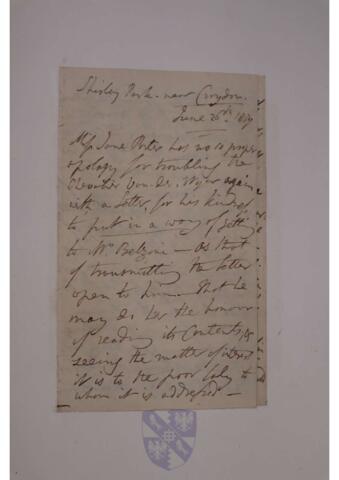 Shirley Park - near Croydon.
June 26th.
Miss Jane Porter has no proper
apology for troubling the
Chevalier Van de Wyer again
with a letter, for his kindness
to put in a way of getting
to Mrs Belzoni - as that
of transmitting the letter
open to him. - that he
may do her the honour
of reading its Contents, &
seeing the matter of interest
it is to the poor lady to
whom it is addressed -